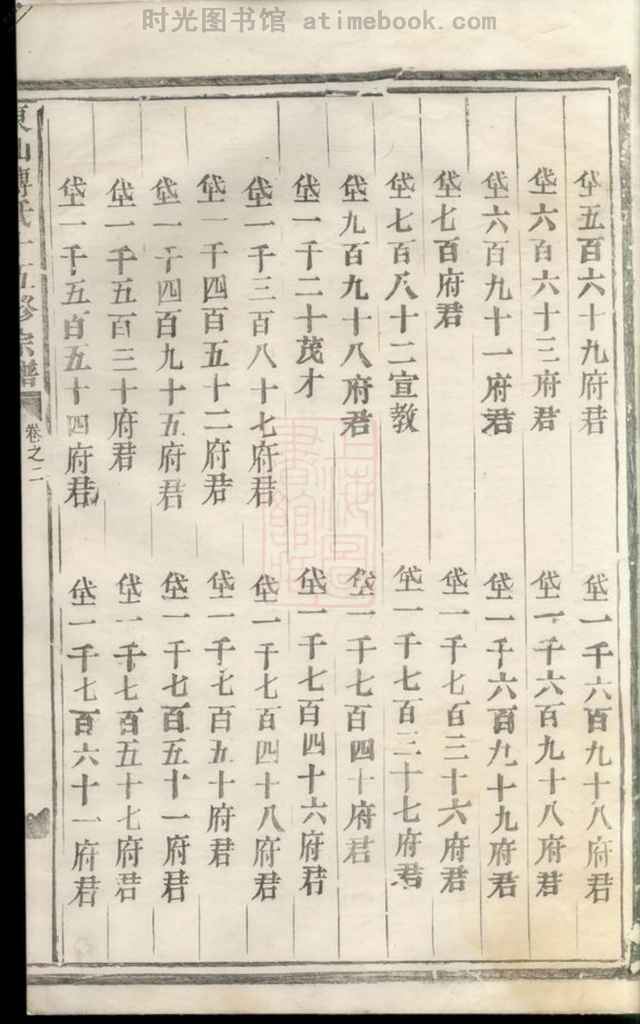 时光图书馆 atimebook.com
垈五百六十九府君
垈六百六十三府君
垈六百九十一府君
垈七百府君
垈七百八十二宣教
垈九百九十八府君
垈一千二十茂才
垈一千三百八十七府君
垈一千四百五十二府君
垈一千四百九十五府君
垈一千五百三十府君
垈一千五百五十四府君
垈一千六百九十八府君
垈一千六百九十八府君
垈一千六百九十九府君
垈一千七百三十六府君
垈一千七百三十七府君
垈一千七百四十府君
垈一千七百四十六府君
垈一千七百四十八府君
垈一千七百五十府君
垈一千七百五十一府君
垈一千七百五十七府君
垈一千七百六十一府君
宗譜
卷之二